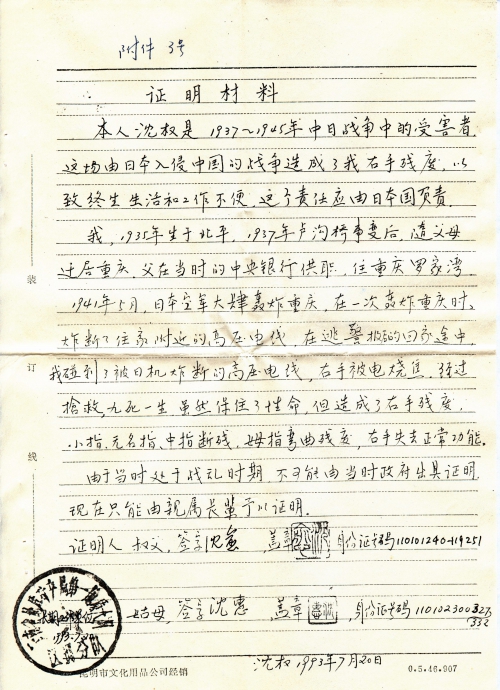 附件 3号
证明材料
本人沈权是1937~1945年中日战争中的受害者.
这场由日本入侵中国的战争造成了我右手残废,以
致终生生活和工作不便,这个责任应由日本国负责.
我,1935年生于北平,1937年卢沟桥事变后,随父母
迁居重庆.父在当时的中央银行供职,住重庆罗家湾.
1941年5月,日本空军大肆轰炸重庆,在一次轰炸重庆时,
炸断了住家附近的高压电线,在逃警报的回家途中,
我碰到了被日机炸断的高压电线,右手被电烧焦,经过
抢救,九死一生虽然保住了性命,但造成了右手残废.
小指、无名指、中指断残、姆指弯曲残废,右手失去正常功能.
由于当时处于战乱时期,不可能由当时政府出具证明,
现在只能由亲属长辈予以证明.
证明人 叔父,签字 盖章 身份证号码110101240119251
姑母,签字沈惠 盖章 身份证号码
沈权 1993年7月20日
装
订
线
昆明市文化用品公司经销
0.5.46.907